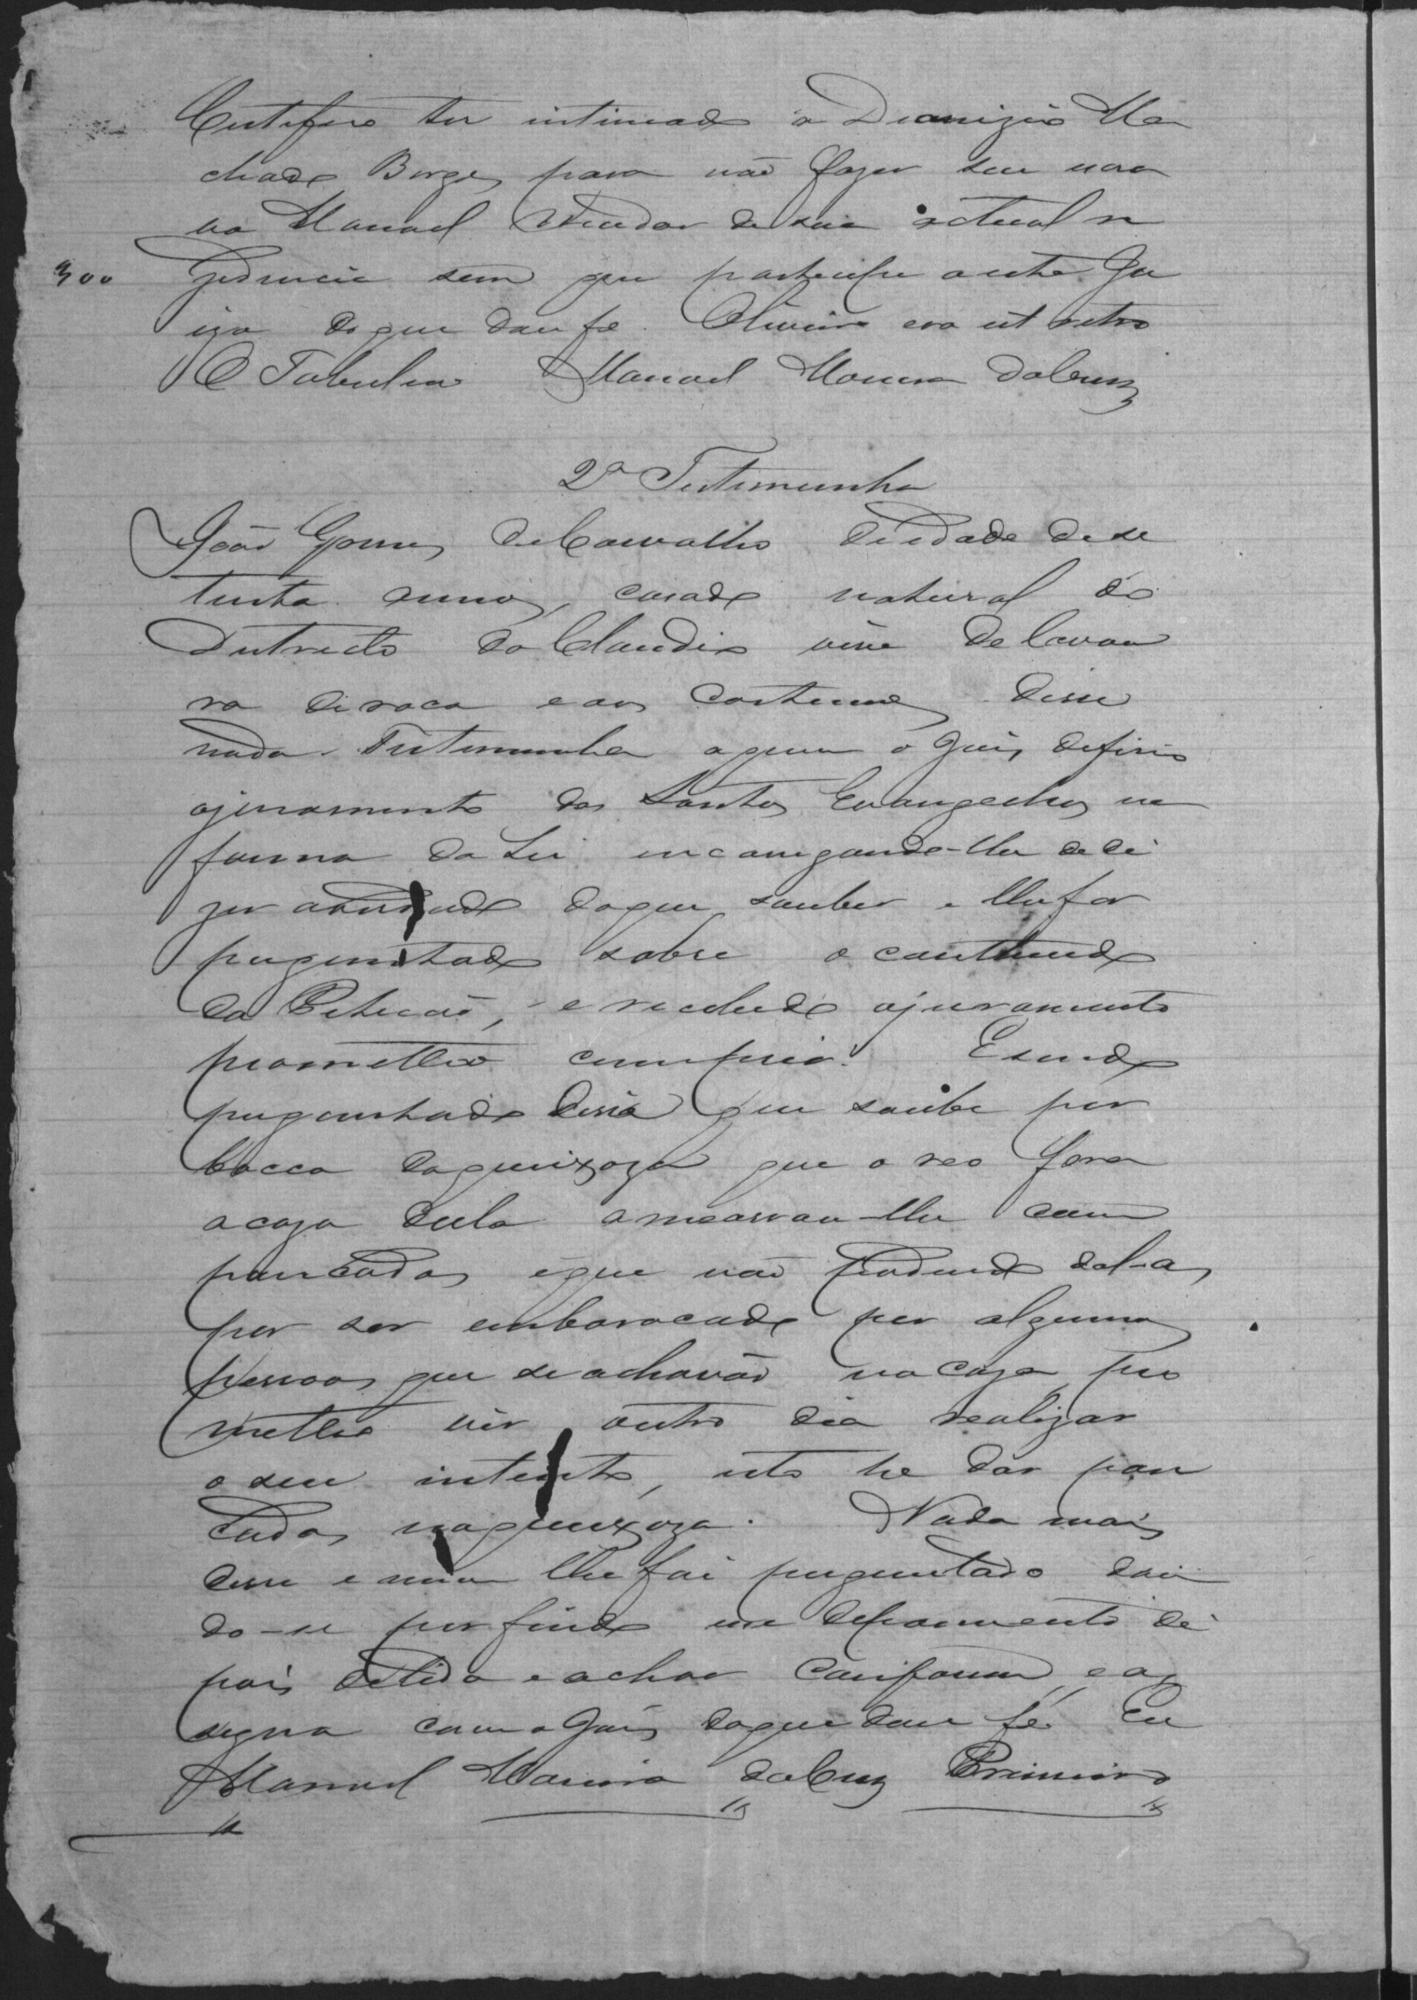 Certifico ter intimado a Dionizio Ma
chado Borges para não fazer seu nova
va Manoel mudar de sua actual re
300
zidencia sem que participe a este Ju
izo do que dou fé. Oliveira era ut retro
O Tabelião Manoel Moreira da Cruz
2ª Testimunha
João Gomes de Carvalho de idade de se
tenta annos, casado natural do
Districto do Claudio vive de lavou
ra de roca e aos costumes disse
nada. Testimunha a quem o Juis defirio
ojuramento dos Santos Evangelhos na
forma da Lei encarregando-lhe de di
zer averdade doque souber e lhe for
preguntado sobre o conthiudo
da Peticão, e recebido ojuramento
prometteo cumprir. E sendo
preguntado disse que soube por
bocca daqueixoza que o reo fora
a caza della ameassou-lhe com
pancadas e que não podendo dal-as
por ser embaracado por algumas
pessoas que se achavão na caza pro
metteo vir outro dia realizar
o seu intento, isto he dar pan
cadas naqueixoza. Nada mais
disse e nem lhe foi preguntado dan
do-se por findo este depoimento de
pois de lido e achar conforme, e as
signa com o Juis do que dou fé Eu
Manoel Moreira da Cruz Primeiro